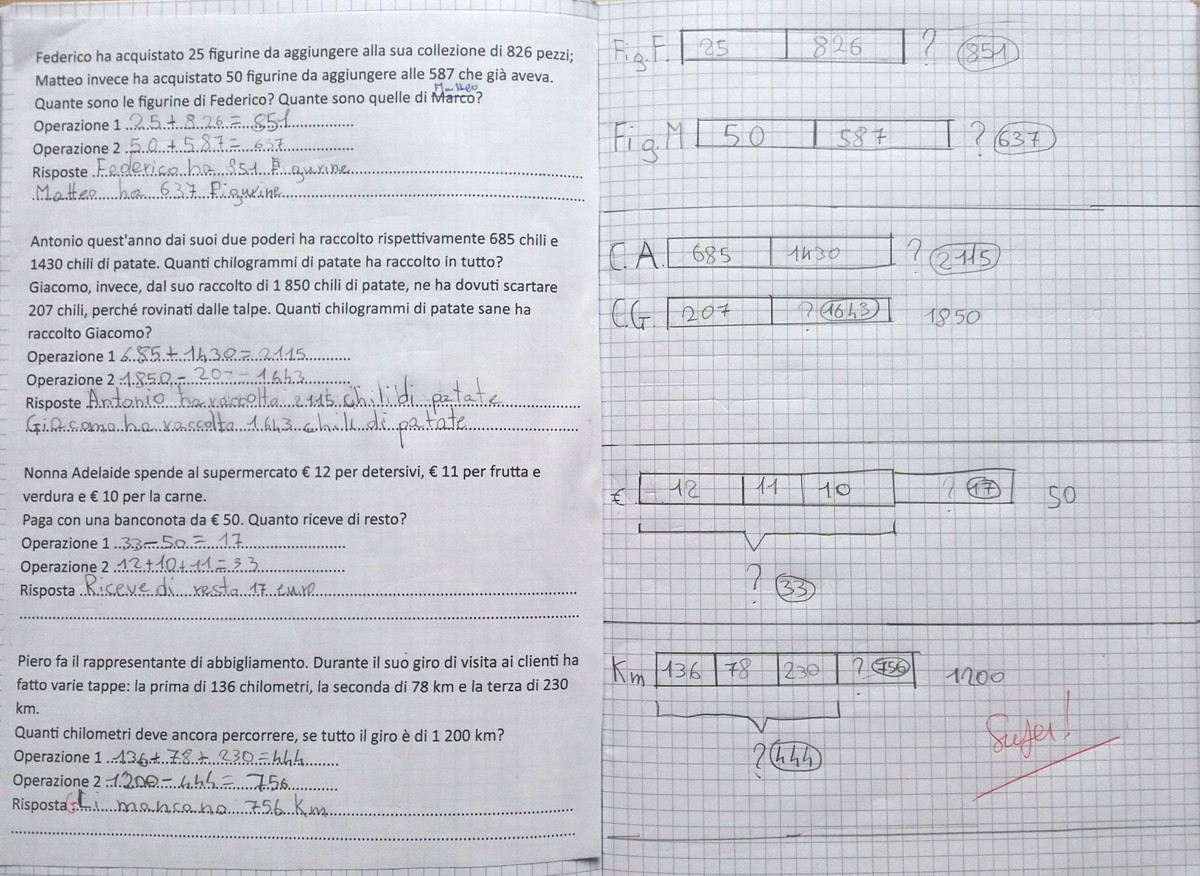 Federico ha acquistato 25 figurine da aggiungere alla sua collezione di 826 pezzi;
Matteo invece ha acquistato 50 figurine da aggiungere alle 587 che già aveva.
Matteo
Quante sono le figurine di Federico? Quante sono quelle di Marco?
Operazione 1 25+826=851
Operazione 2 50+587=637
Risposte Federico ha 851 Figurine
Matteo ha 637 Figurine
Antonio quest'anno dai suoi due poderi ha raccolto rispettivamente 685 chili e
1430 chili di patate. Quanti chilogrammi di patate ha raccolto in tutto?
Giacomo, invece, dal suo raccolto di 1 850 chili di patate, ne ha dovuti scartare
207 chili, perché rovinati dalle talpe. Quanti chilogrammi di patate sane ha
raccolto Giacomo?
Operazione 1 685+1430=2115
Operazione 2 1850-207=1643
Risposte Antonio ha raccolta 2115 chili di patate
Giacomo ha raccolta 1643 chili di patate
Nonna Adelaide spende al supermercato € 12 per detersivi, € 11 per frutta e
verdura e € 10 per la carne.
Paga con una banconota da € 50. Quanto riceve di resto?
Operazione 1 33-50=17
Operazione 2 12+10+11=33
Risposta Riceve di resto 17 euro
Piero fa il rappresentante di abbigliamento. Durante il suo giro di visita ai clienti ha
fatto varie tappe: la prima di 136 chilometri, la seconda di 78 km e la terza di 230
km.
Quanti chilometri deve ancora percorrere, se tutto il giro è di 1 200 km?
Operazione 1 136+78+230=444
Operazione 2 1200-444=756
Risposta Gli mancano 756 Km
Fig.F. 25 826 ? 851
Fig.M 50 587 ? 637
C.A. 685 1430 ? 2115
C.G. 207 ? 1643 1850
€ 12 11 10 ? 17 50
? 33
Km 136 78 230 ? 756 1200
? 444
Super!